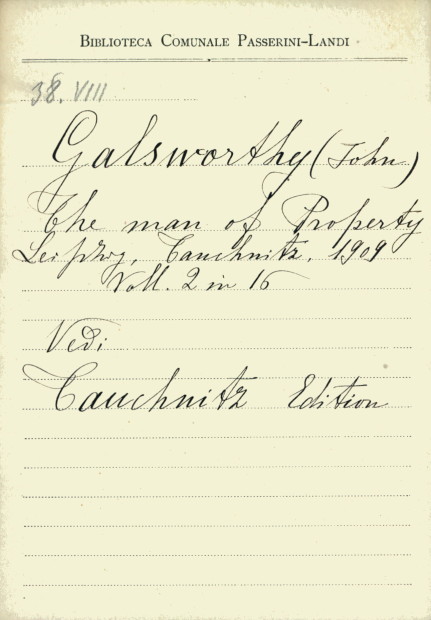 BIBLIOTECA COMUNALE PASSERINI-LANDI
38. VIII
Galsworthy (John)
The man of Property
Leipzig, Tauchnitz, 1909
Voll. 2 in 16
Vedi
Tauchnitz Edition